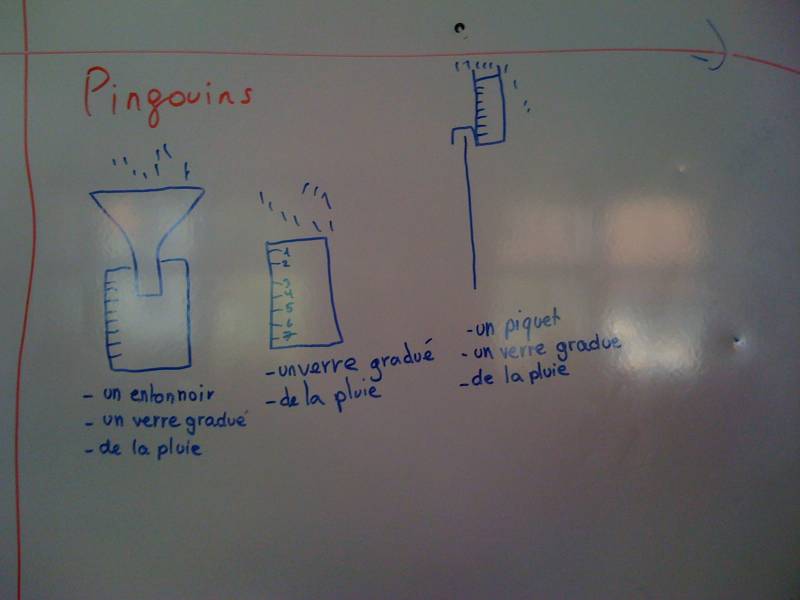 Pingouins
1
2
3
4
5
6
7
- un entonnoir
- un verre gradué
- de la pluie
- un verre gradué
- de la pluie
- un piquet
- un verre gradue
- de la pluie